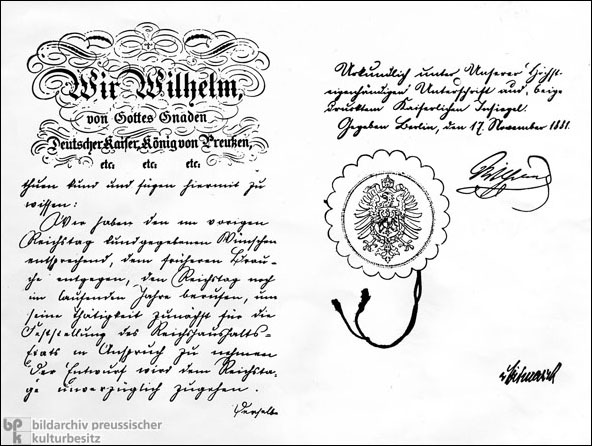 Wir Wilhelm,
von Gottes Gnaden
Deutscher Kaiser, König von Preußen,
etc. etc. etc.
thun kund und fügen hiermit zu
wissen:
Wir haben den im vorigen
Reichstag kundgegebenen Wünschen
entsprechend, dem früheren Brau-
che entgegen, den Reichstag noch
im laufenden Jahre berufen, um
seine Thätigkeit zunächst für die
Feststellung des Reichshaushalts-
Etats in Anspruch zu nehmen
Der Entwurf wird dem Reichsta-
ge unverzüglich zugehen.
Derselbe
Urkundlich unter Unserer Höchst-
eigenhändigen Unterschrift und beige
drucktem Kaiserlichen Insiegel.
Gegeben Berlin, den 17. November 1881.
Wilhelm
v Bismarck
bpk
bildarchiv preussischer
kulturbesitz